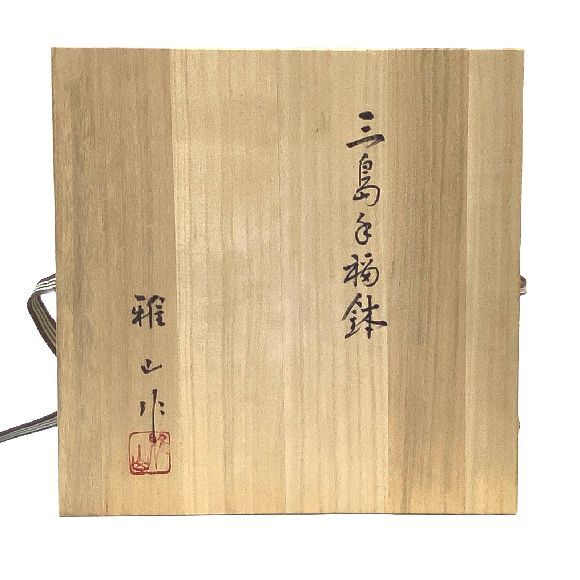 三島手福鉢
雅山作